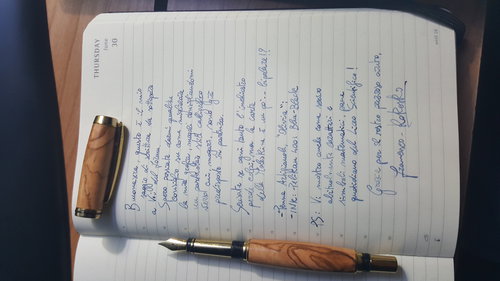 THURSDAY
June
30
Buonasera, questo è il mio
saggio di scrittura da sottoporre
a Voi del forum.
Spero possiate darmi qualche
consiglio su come migliorare
la mia grafia, magari consigliandomi
un particolare stile calligrafico
verso cui, magari, sono già
predisposto in partenza.
Scusate se ogni tanto l'inchiostro
perde colpi, ma la carta
della Moleskine è un po'... bipolare!?
-Penna Artigianale, "Olivia";
-INK: Pelikan 4001, Blu-Black
PS: Vi mostro anche come scrivo
abitualmente caratteri e
simboli matematici, pane
quotidiano del Liceo Scientifico!
Grazie per il vostro prezioso aiuto,
Francesco -